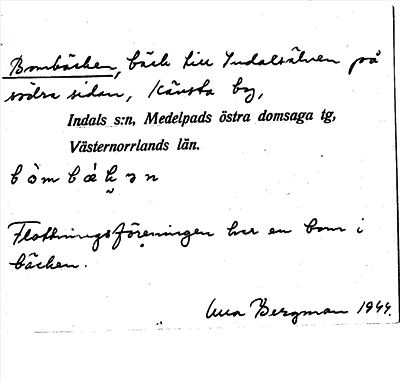 Bombäcken, bäck till Indalsälven på
södra sidan, Kävsta by,
Indals s:n, Medelpads östra domsaga tg,
Västernorrlands län.
bòmbák̬ən
Flottningsföreningen har en bom i
bäcken.
Bergman 1944.